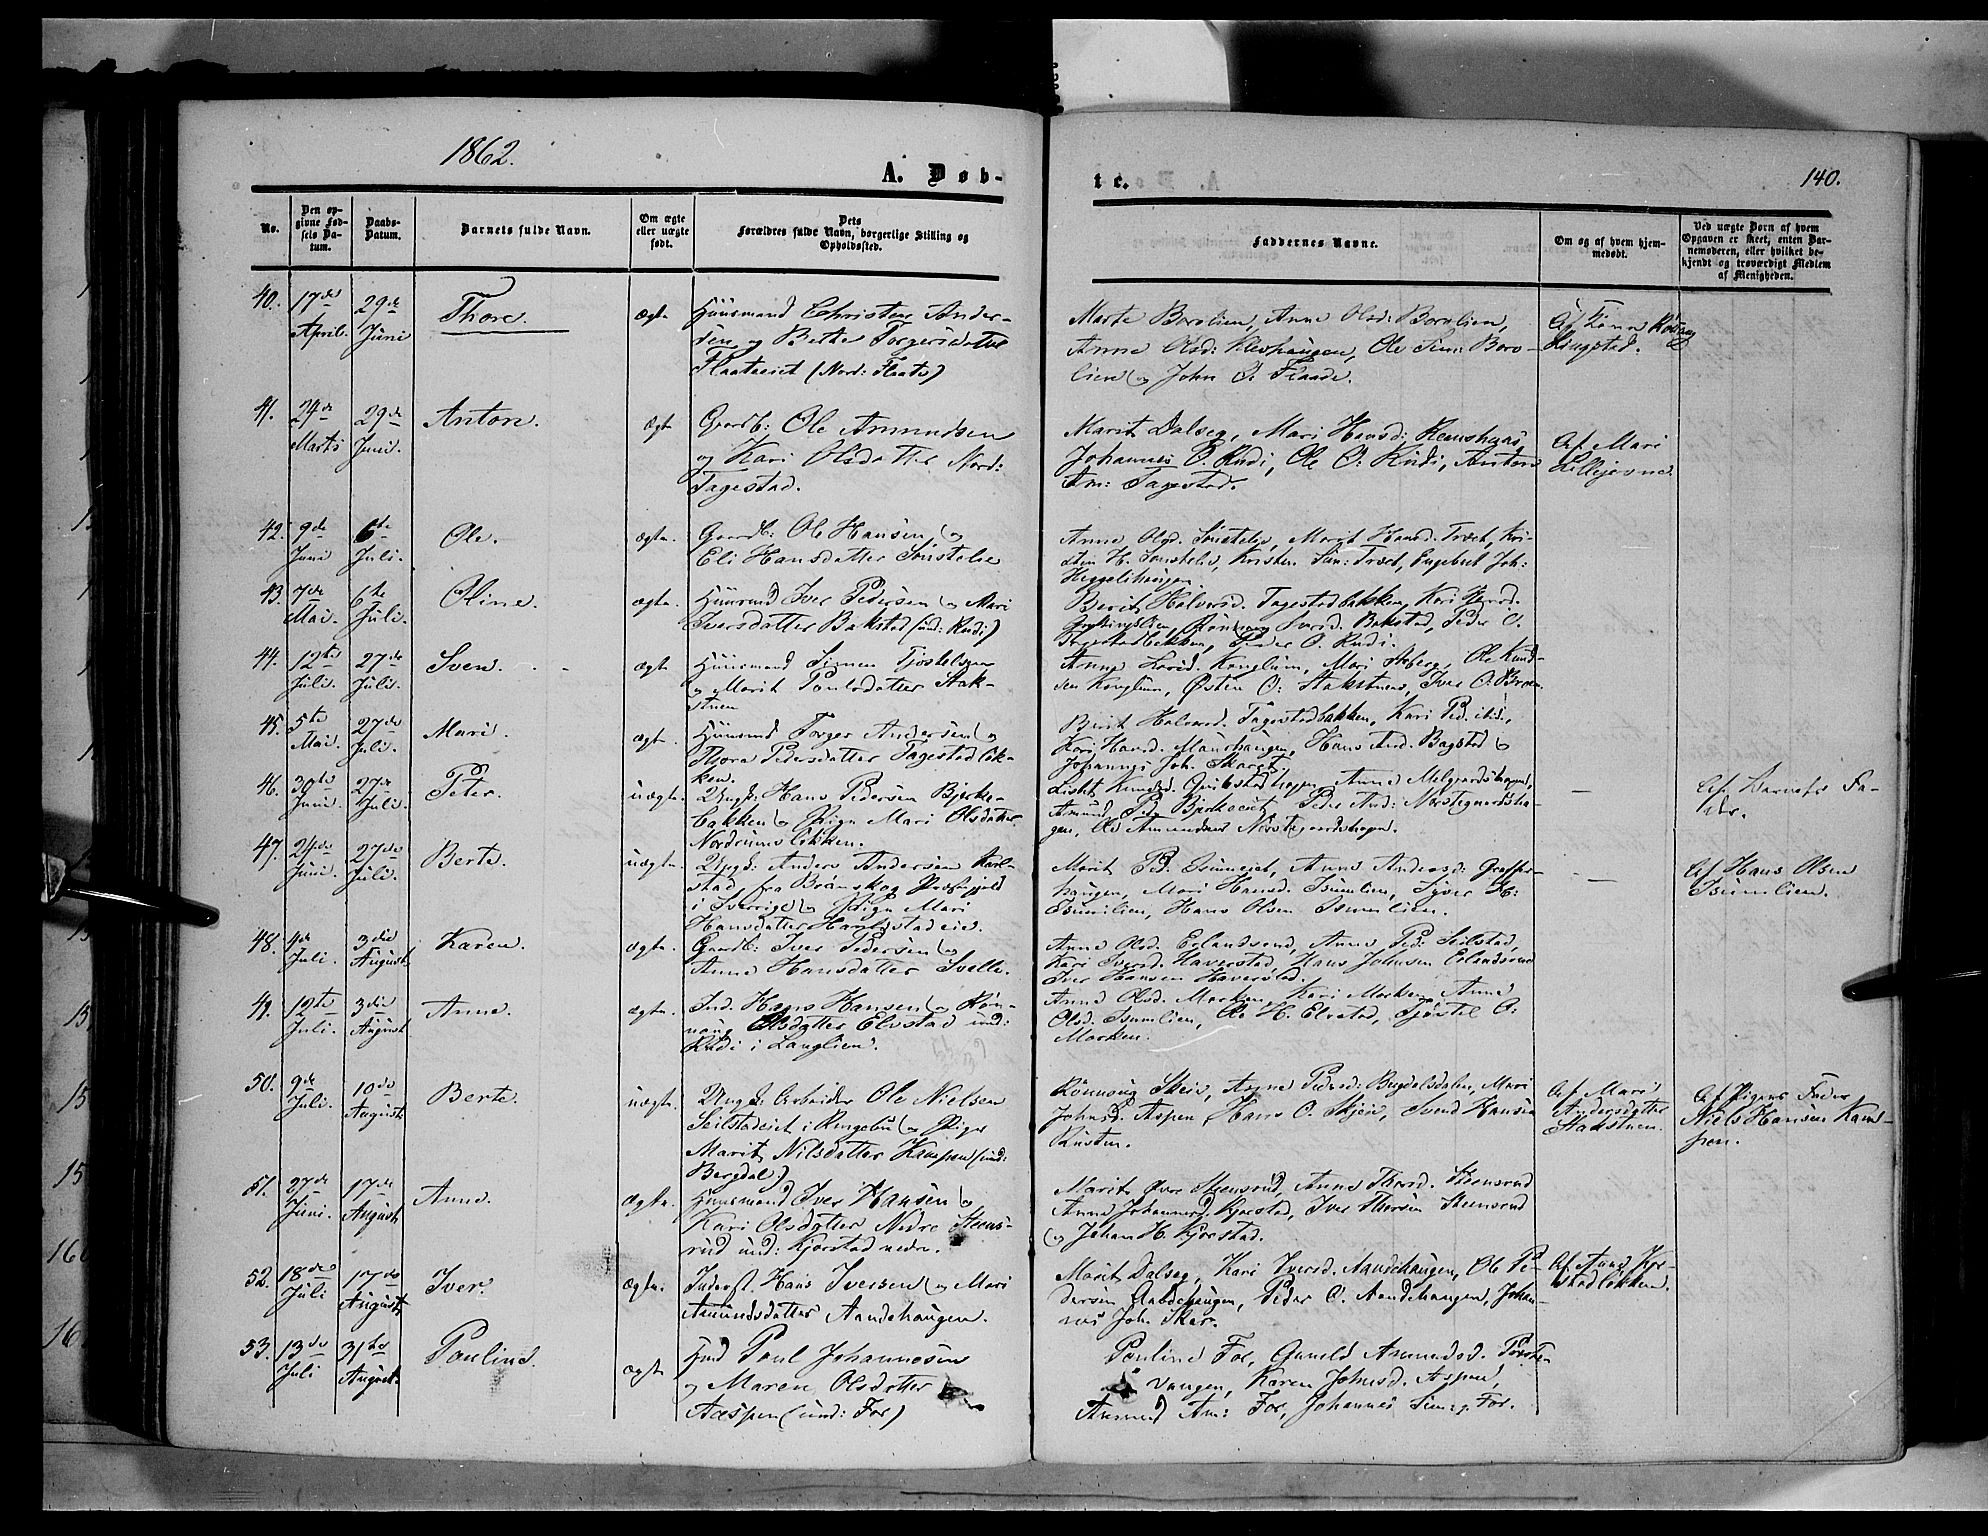 1862.
A. Døb-
te.
140.
No.
Den op-
givne Fød-
sels Da-
tum.
Daabs-
Datum.
Barnets fulde Navn.
Om ægte
eller uægte
født.
Dets
Forældres fulde Navn, borgerlige Stilling og
Opholdssted.
Faddernes Navne.
Om og af hvem hjem-
medøbt.
Ved uægte Børn af hvem
Opgaven er skeet, enten Bar-
nemoderen, eller hvilket be-
kjendt og troværdigt Medlem
af Menigheden.
40. 17de April. 29de Juni Thore. ægte
Huusmand Christen Ander-
sen og Berte Torgersdatter
Flaateeiet (Nord: Flaate)
Marte Borolien, Anne Olsd: Borolien,
Anne Olsd: Klevhaugen, Ole Sim: Boro-
lien og John O. Flaade.
Ringstad.
41. 24de Marts 29de Juni. Anton. ægte
Gaardb: Ole Amundsen
og Kari Olsdatter Nord:
Tagestad.
Marit Dalseg, Mari Hansd:
Johannes O. Rudi, Ole O. Rudi, Anton
Am: Tagestad.
Af Mari
Lillejevne.
42. 9de Juni 6te Juli. Ole. ægte.
Gaardb: Ole Hansen og
Eli Hansdatter Sønstelie
Anne Olsd. Sønstelie, Marit Hansd. Træet, Kri-
sten H. Sønstelie, Kristen Sim: Træet, Engebret Joh:
Heggelihaugen
43. 7de Mai. 6te Juli. Oline. ægte.
Huusmd Iver Pedersen og Mari
Iversdatter Bakstad (und: Rudi)
Berit Halvorsd. Tagestadbakken, Kari
Rønnaug Iversd. Bakstad, Peder O.
Tagestadbakken, Peder O. Rudi.
44. 12te Juli. 27de Juli. Sven. ægte
Huusmand Simen Tjøstelsen
og Marit Paulsdatter Stak-
stuen
Anne Larsd. Konglien, Mari Aaberg, Ole Knud-
sen Konglien, Østen O: Stakstuen, Iver O: Bræn.
45. 5te Mai. 27de Juli. Mari. ægte.
Huusmd Torger Andersen og
Thora Pedersdatter Tagestadbak-
ken.
Berit Halvorsd. Tagestadbakken, Kari Ped. ibid.,
Kari Hansd. Maushaugen, Hans And. Bagstad og
Johannes Joh. Skaret.
46. 30te Juni. 27de Juli. Peter. uægte.
Ungk: Hans Pedersen Bjerke-
bakken og Pige Mari Olsdatter
Nordrumsbakken.
Lisbet Knudsd. Qvilestadhagen, Anne Melgaardshagen,
Amund Ped. Bjerkeeiet, Peder And: Nørstegaardsha-
gen, Ole Amundsen Nørstegaardshagen.
—
Af Barnets Fa-
der.
47. 24de Juni. 27de Juli. Berte. uægte.
Ungk: Anders Andersen Karl-
stad fra Brønskog Præstegjeld
i Sverrige og Pige Mari
Hansdatter Harlystadeie.
Marit Pd. Isumeiet, Anne Andersd:
haugen, Mari Hansd. Isumlien, Syver H.
Isumlien, Hans Olsen Isumlien.
—
Af Hans Olsen
Isumlien.
48. 4de Juli. 3die August Karen. ægte.
Gaardb: Iver Pedersen og
Anne Hansdatter Svelle.
Anne Olsd. Erlandsrud, Anne Ped: Seilstad,
Kari Iversd. Haverstad, Hans Johnsen Erlandsrud
Iver Hansen Haverstad.
49. 12te Juli. 3die August Anne. ægte.
Ind. Hans Hansen og Røn-
naug Olsdatter Elvstad und:
Rudi i Langlien.
Anne Olsd. Morken, Kari Morken, Anne
Olsd. Isumlien, Ole H. Elvstad, Tjøstel O.
Morken.
50. 9de Juli. 10de August Berte. uægte.
Ungk. Arbeider Ole Nielsen
Seilstadeiet i Ringebu og Pige
Marit Nilsdatter Kampen (und:
Bergdal)
Rønnoug Skeie, Anne Pedersd: Bugdelsdalen, Mari
Johnsd. Aspen, Hans O. Skjeie, Svend Hansen
Rusten.
Af Mari
Andersdatter
Stakstuen.
Af Pigens Fader
Niels Hansen Kam-
pen.
51. 27de Juni. 17de August Anne. ægte.
Huusmand Iver Hansen og
Kari Olsdatter Nedre Steens-
rud und: Kjorstad nedre.
Marit Øvre Steensrud, Anne Thorsd. Steensrud
Anne Johannesd. Kjorstad, Iver Thorsen Steensrud
og Johan H. Kjorstad.
52. 18de Juli 17de August Iver. ægte.
Inderst Hans Iversen og Mari
Amundsdatter Aandehaugen.
Marit Dalseg, Kari Iversd. Aandehaugen, Ole Pe-
dersen Aandehaugen, Peder O. Aandehaugen, Johan-
nes Joh. Skar.
53. 13de Juli 31te August. Pauline. ægte
Hmd Paul Johannesen
og Maren Olsdatter
Aaspen (und: For)
Pauline For, Gunild Amundsd.
vangen, Karen Johnsd. Aspen,
Amund Am: For, Johannes Sim: For.